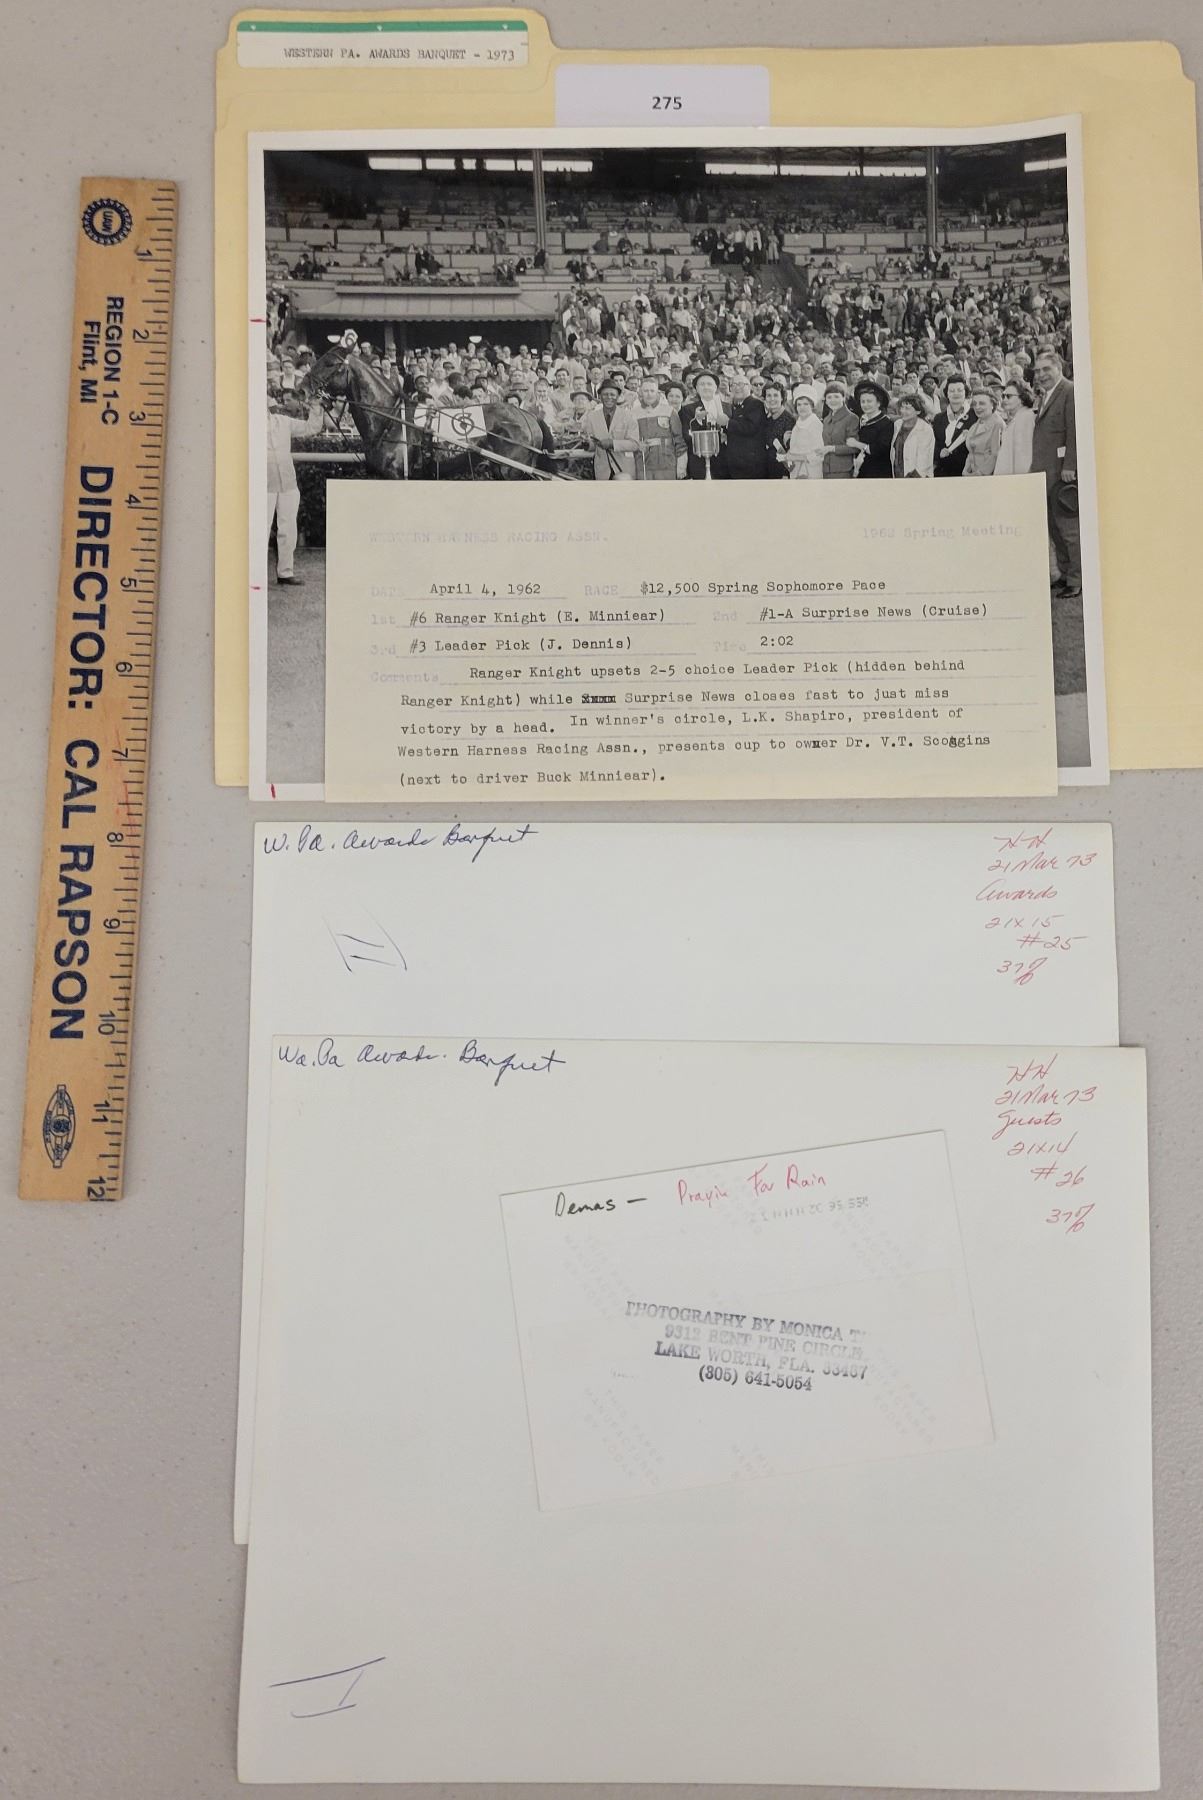 WESTERN PA. AWARDS BANQUET - 1973
275
UAW
REGION 1-C
Flint, MI
DIRECTOR: CAL RAPSON
1 2 3 4 5 6 7 8 9 10 11 12
6
WESTERN HARNESS RACING ASSN. 1962 Spring Meeting
DATE April 4, 1962 RACE $12,500 Spring Sophomore Pace
1st #6 Ranger Knight (E. Minniear) 2nd #1-A Surprise News (Cruise)
3rd #3 Leader Pick (J. Dennis) Time 2:02
Comments Ranger Knight upsets 2-5 choice Leader Pick (hidden behind
Ranger Knight) while Surprise News closes fast to just miss
victory by a head. In winner's circle, L.K. Shapiro, president of
Western Harness Racing Assn., presents cup to owner Dr. V.T. Scoggins
(next to driver Buck Minniear).
W. Pa. Awards Banquet
HH
21 Mar 73
Awards
21x15
#25
37%
Wa. Pa Awards. Banquet
HH
21 Mar 73
Guests
21x14
#26
37%
Demas - Prayin For Rain
PHOTOGRAPHY BY MONICA
9312 BENT PINE CIRCLE
LAKE WORTH, FLA. 33467
(305) 641-5054
THIS PAPER
MANUFACTURED
BY KODAK